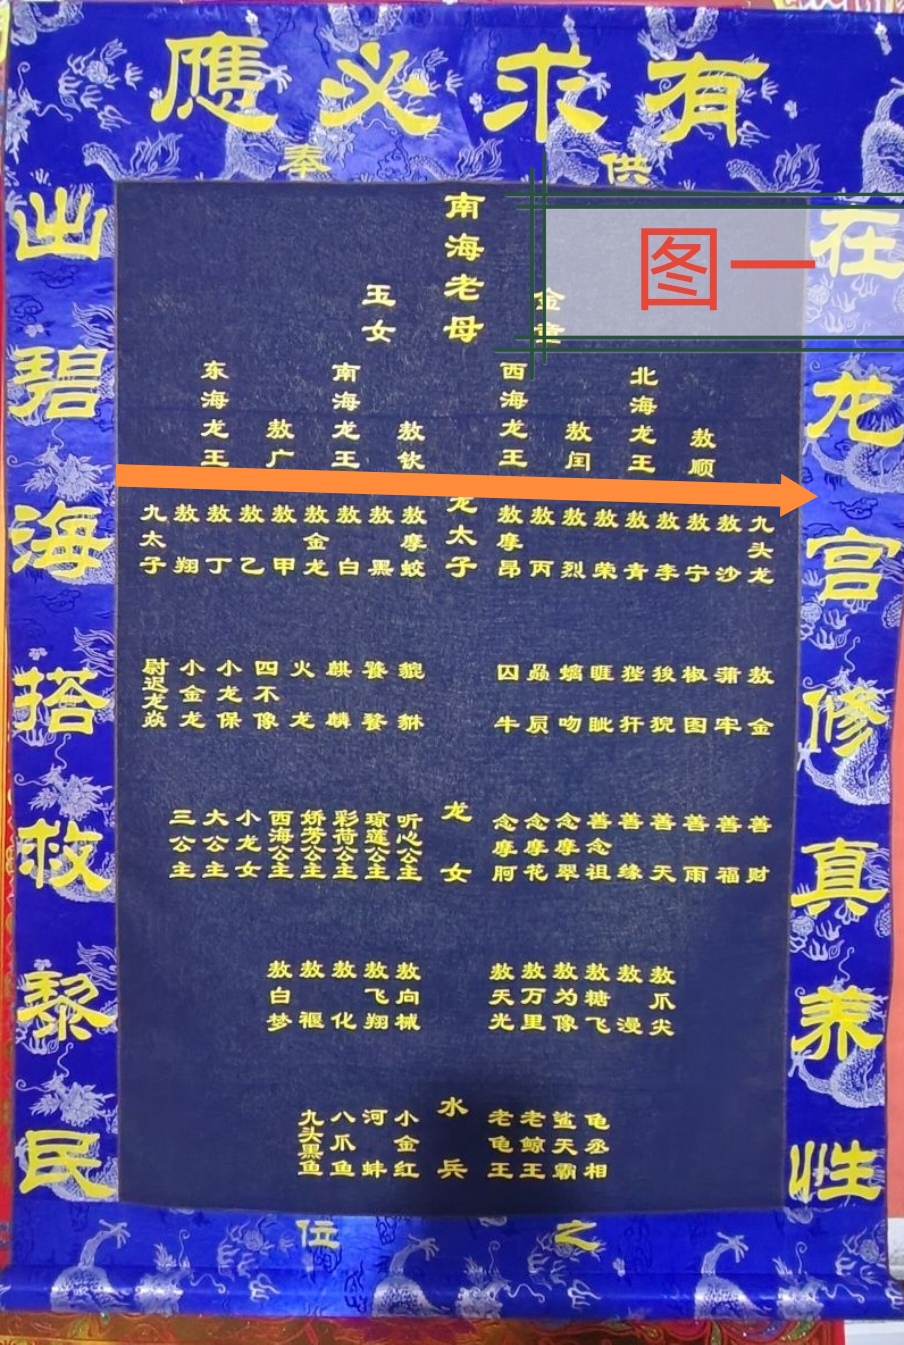 有求必應
供奉
图一
在龙宫修真养性
出碧海搭救黎民
南海老母
金童
玉女
北海龙王 敖顺
西海龙王 敖闰
南海龙王 敖钦
东海龙王 敖广
龙太子
九头龙 敖沙 敖宁 敖李 敖青 敖荣 敖烈 敖丙 敖摩昂
敖摩蛟 敖黑 敖白 敖金龙 敖甲 敖乙 敖丁 敖翔 九太子
敖金 蒲牢 椒图 狻猊 狴犴 睚眦 螭吻 赑屃 囚牛
貔貅 饕餮 麒麟 火龙 四不像 小龙保 小金龙 尉迟龙焱
龙女
善财 善福 善雨 善天 善缘 善念祖 念摩翠 念摩花 念摩舸
听心公主 琼莲公主 彩荷公主 娇芳公主 西海公主 小龙女 大公主 三公主
敖爪尖 敖漫 敖糖飞 敖为像 敖万里 敖天光
敖向械 敖飞翔 敖化 敖褪 敖白梦
水兵
龟丞相 鲨天霸 老鲸王 老龟王
小金红 河蚌 八爪鱼 九头黑鱼
之位